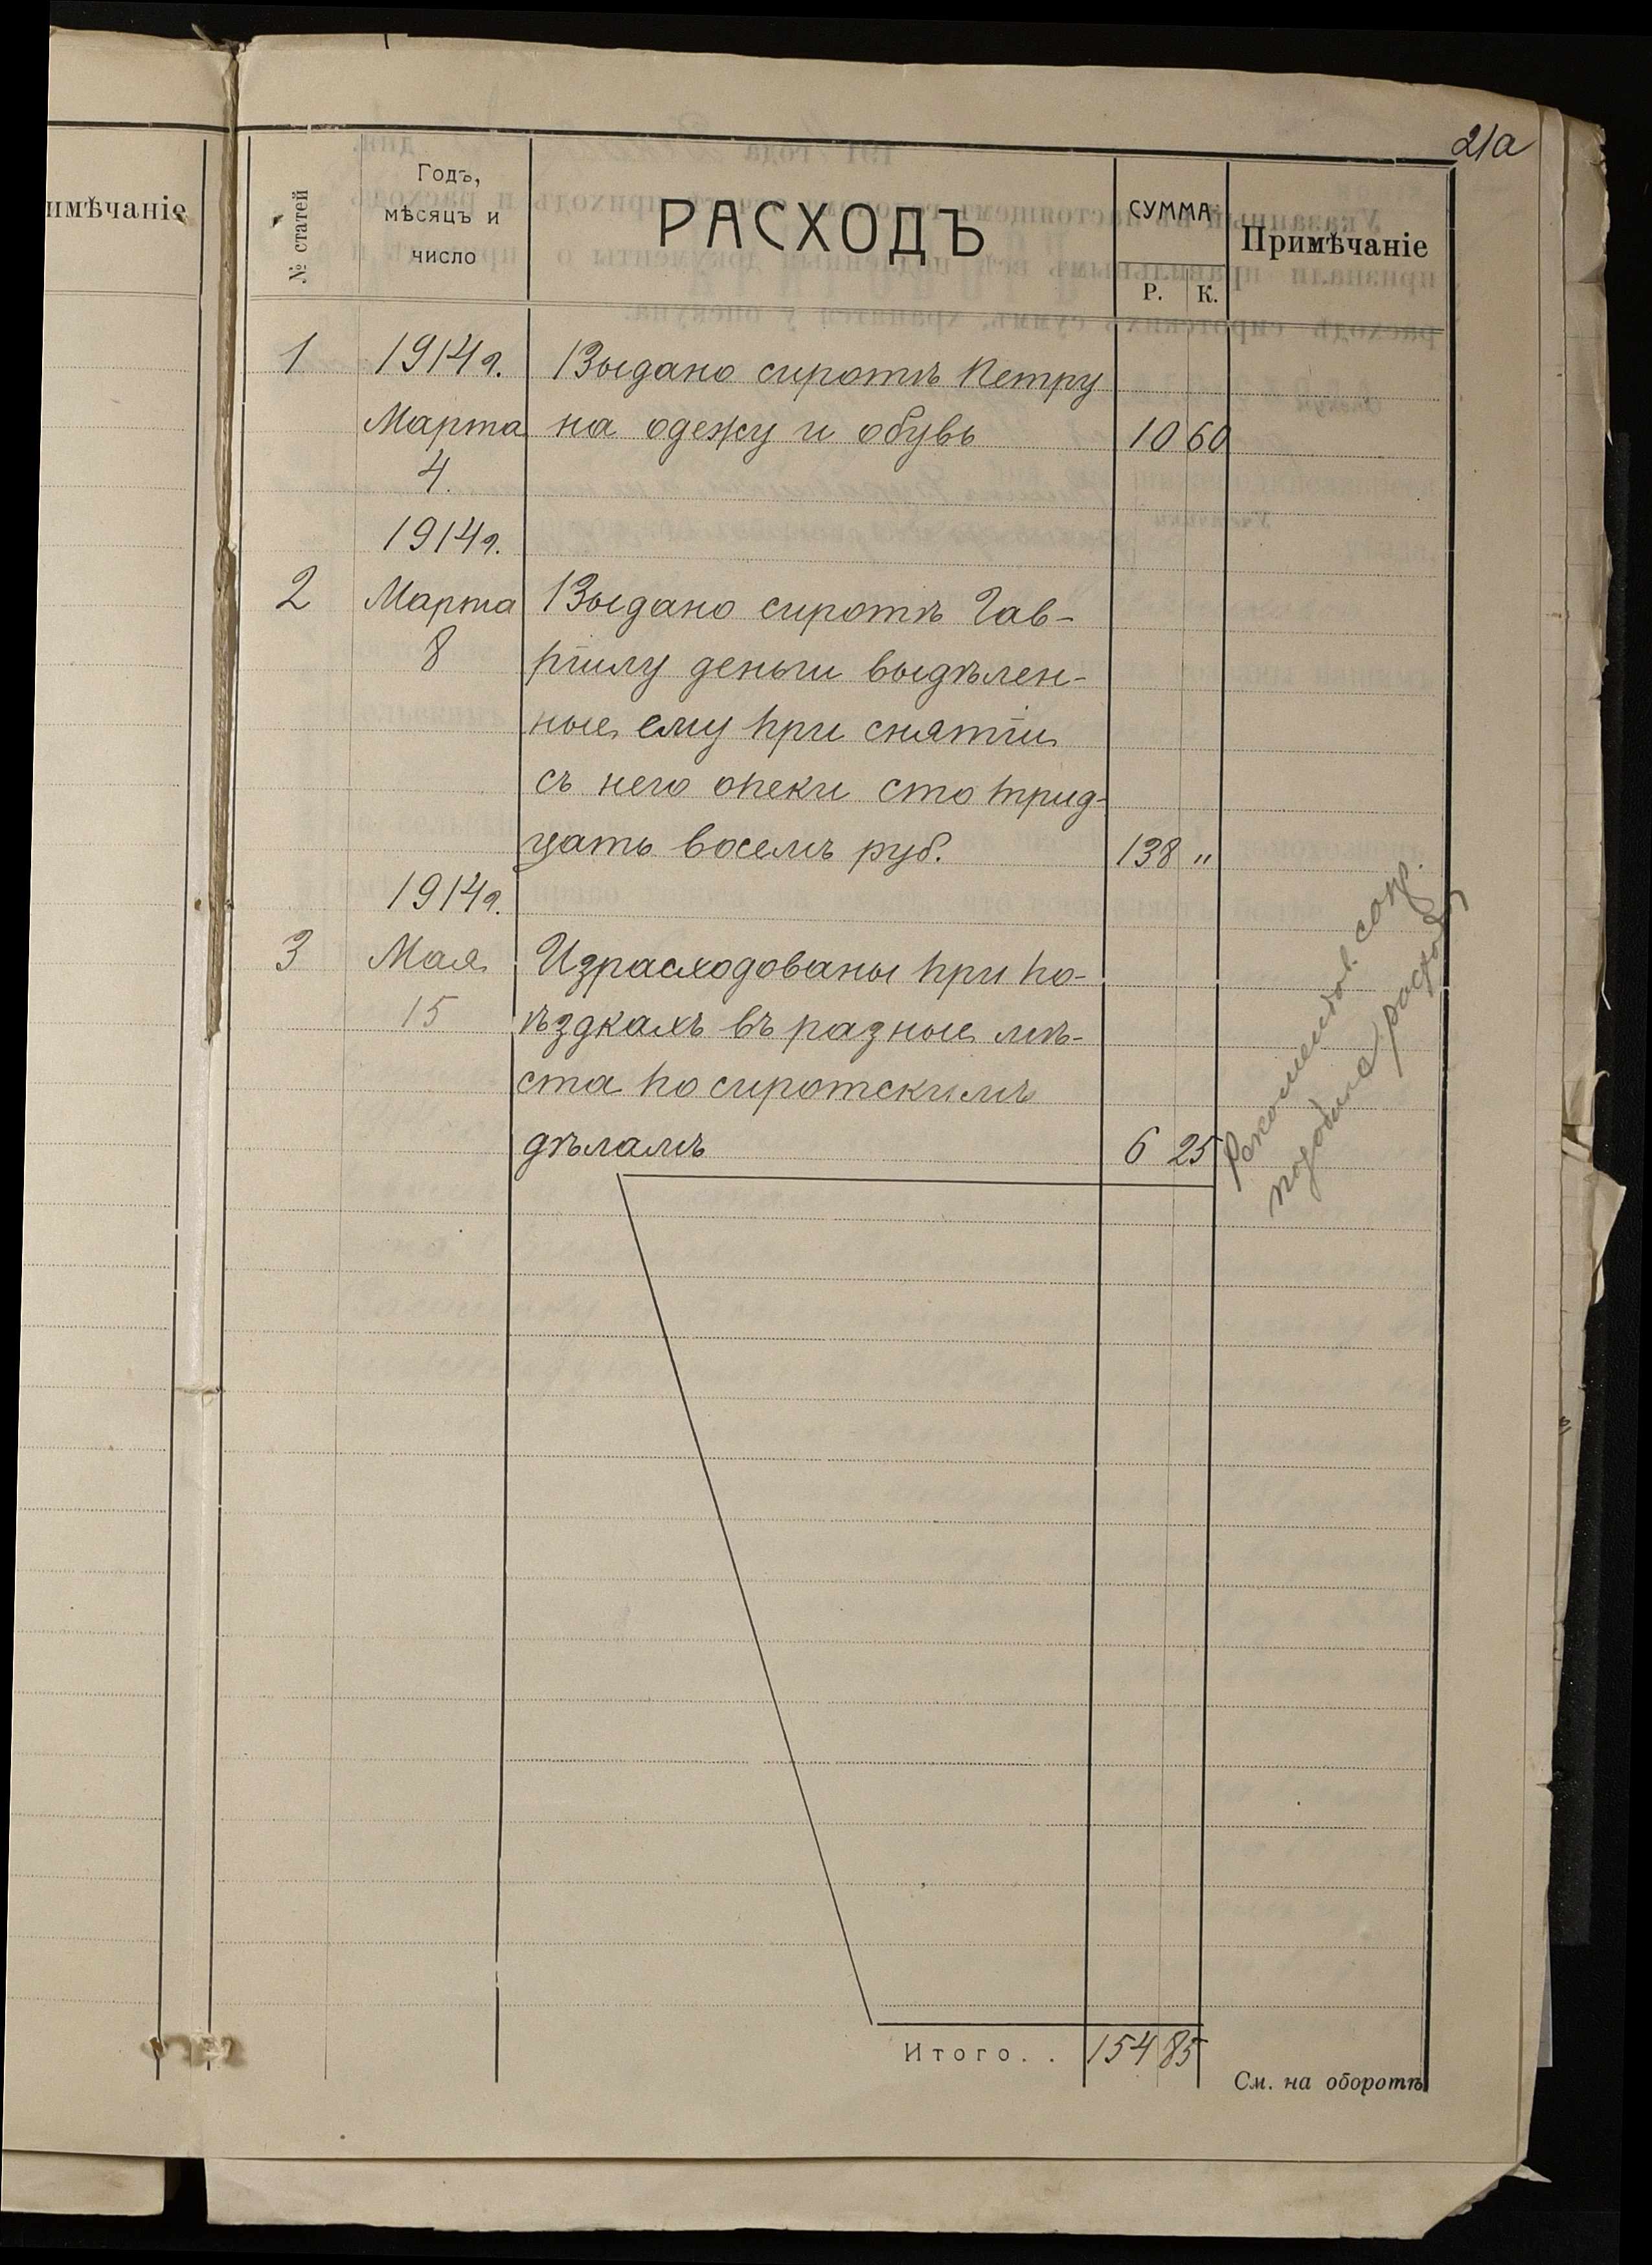 21а
имѣчаніе
№ статей
Годъ,
мѣсяцъ и
число
РАСХОДЪ
СУММА
Р. К.
Примѣчаніе
1 1914 г. Выдано сиротѣ Петру
Марта на одежу и обувь 10 60
4.
1914 г.
2 Марта Выдано сиротѣ Гав-
8 ріилу деньги выдѣлен-
ные ему при снятіи
съ него опеки сто трид-
цать восемъ руб. 138 "
1914 г.
3 Мая Израсходованы при по-
15 ѣздкахъ въ разные мѣ-
ста по сиротскимъ
дѣламъ 6 25
подобные расходы
Итого. . 154 85
См. на оборотѣ